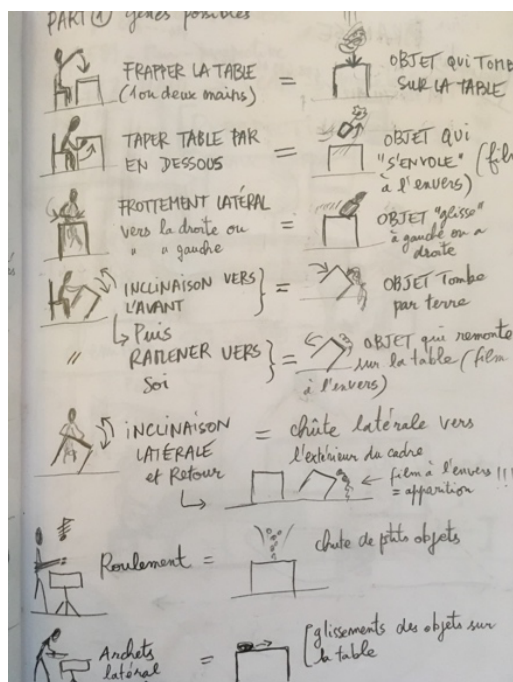 PART ① gestes possibles
FRAPPER LA TABLE
(1 ou deux mains)
=
OBJET QUI TOMB
SUR LA TABLE
TAPER TABLE PAR
EN DESSOUS
=
OBJET QUI
"S'ENVOLE" (film
à l'envers)
FROTTEMENT LATÉRAL
vers la droite ou
" a gauche
=
OBJET "glisse"
à gauche ou a
droite
INCLINAISON VERS
L'AVANT
=
OBJET Tombe
par terre
↳ Puis
" RAMENER VERS
Soi
=
OBJET qui remonte
sur la table (film
à l'envers)
INCLINAISON
LATÉRALE
et Retour
= chûte latérale vers
l'extérieur du cadre
↳
← film à l'envers !!!
= apparition
Roulement =
chute de ptits objets
Archets
latéral
=
[glissements des objets sur
la table